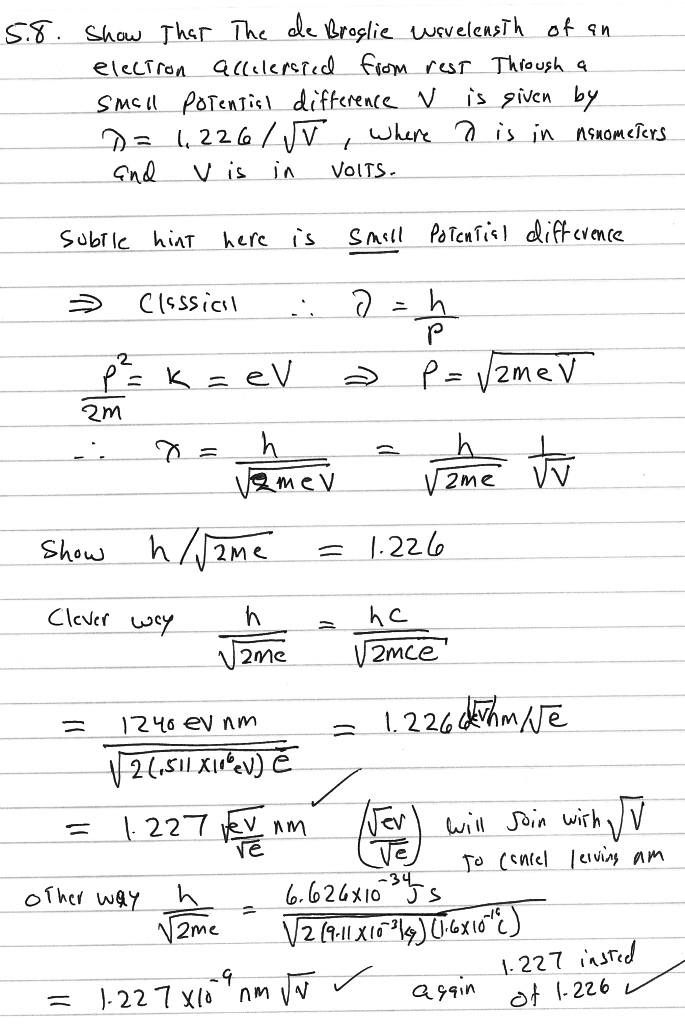 5.8. Show That The de Broglie wavelength of an
electron accelerated from rest Through a
small Potential difference V is given by
λ = 1.226/√V, where λ is in nanometers
and V is in volTs.
Subtle hint here is small Potential difference
⇒ Classical ∴ λ = h/P
P²/2m = K = eV ⇒ P = √2meV
∴ λ = h/√2meV = h/√2me 1/√V
Show h/√2me = 1.226
Clever way h/√2me = hc/√2mce
= 1240 eV nm/√2(.511 x10⁶ eV) e = 1.226 nm/√e
= 1.227 √eV/√e nm (√eV/√e) will Join with √V
To cancel leaving nm
OTher way h/√2me = 6.626x10⁻³⁴ J s/√2(9.11 x10⁻³¹kg)(1.6x10⁻¹⁹C)
= 1.227 x10⁻⁹ nm √V ✓ again 1.227 insted
of 1.226 ✓